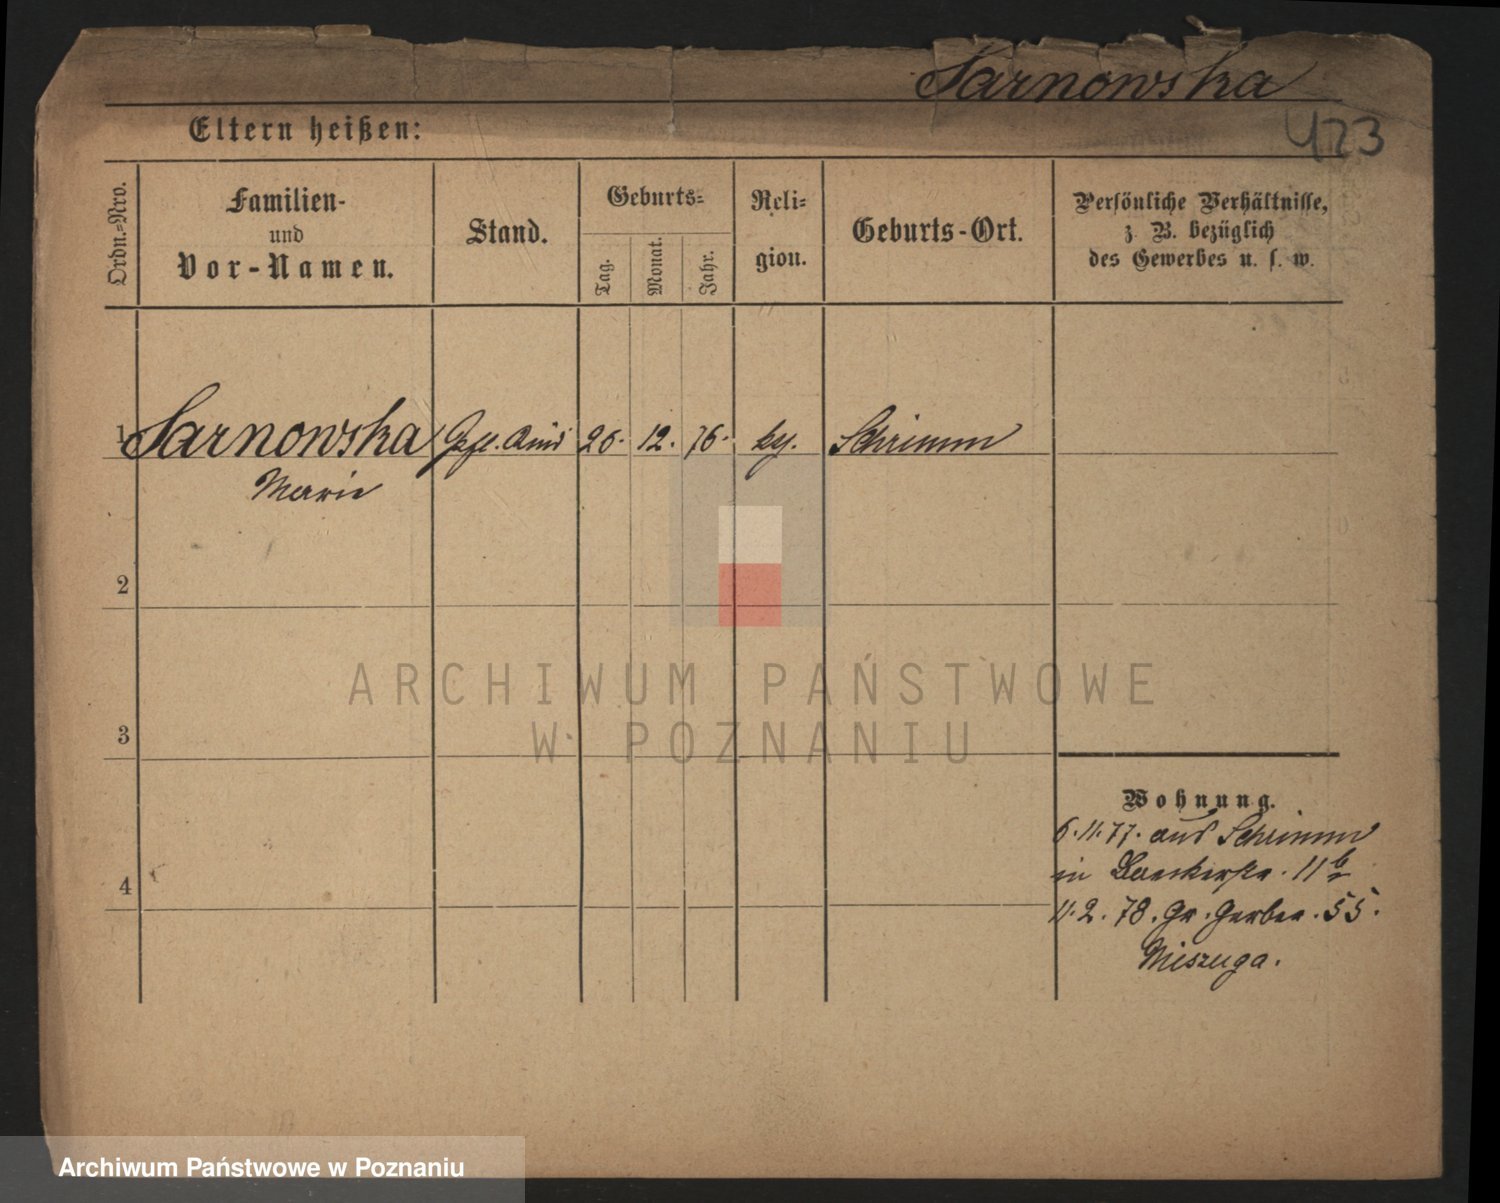 Sarnowska
423
Eltern heißen:
Ordn.-Nro.
Familien-
und
Vor-Namen.
Stand.
Geburts-
Tag.
Monat.
Jahr.
Reli-
gion.
Geburts-Ort.
Persönliche Verhältnisse,
z. B. bezüglich
des Gewerbes u. s. w.
1 Sarnowska Pfl. Kind 26. 12. 76. kg. Schrimm
Marie
2
ARCHIWUM PAŃSTWOWE
W POZNANIU
3
Wohnung.
6.11.77. aus Schrimm
in Baeckerstr. 11b
4
11.2.78. Gr. Gerber. 55.
Miszuga.
Archiwum Państwowe w Poznaniu